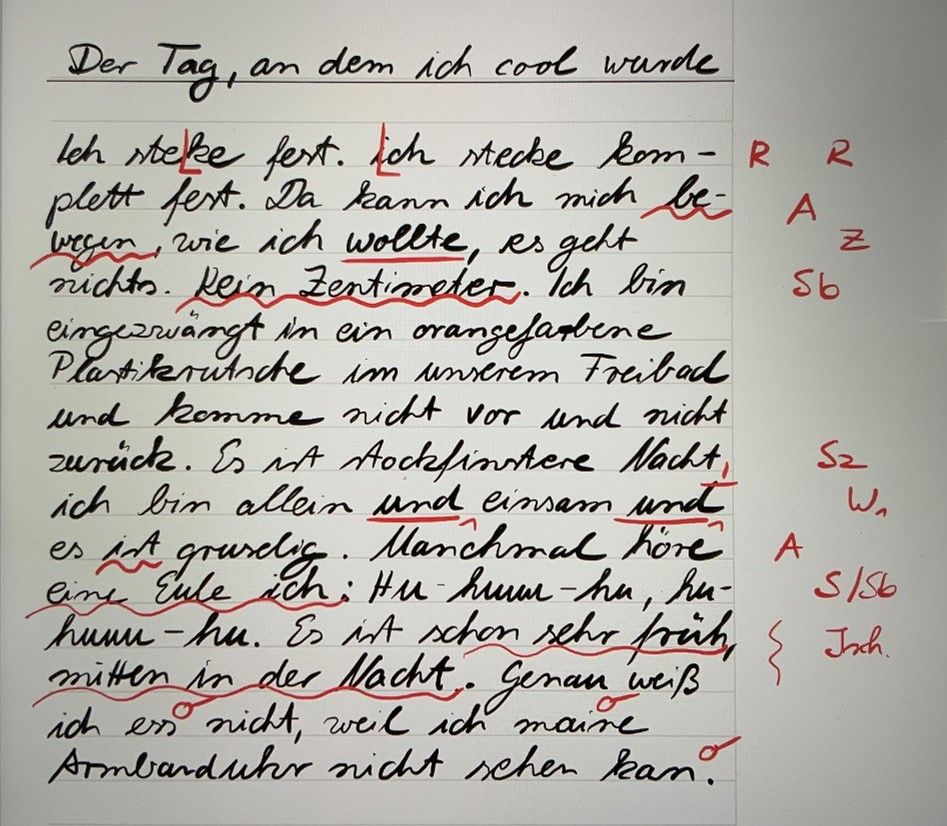 Der Tag, an dem ich cool wurde
Ich steke fest. ich stecke kom- R R
plett fest. Da kann ich mich be- A
wegen, wie ich wollte, es geht Z
nichts. Kein Zentimeter. Ich bin Sb
eingezwängt in ein orangefarbene
Plastikrutsche im unserem Freibad
und komme nicht vor und nicht
zurück. Es ist stockfinstere Nacht, Sz
ich bin allein und einsam und W
es ist gruselig. Manchmal höre A
eine Eule ich: Hu-huuu-hu, hu- S/Sb
huuu-hu. Es ist schon sehr früh, Inh.
mitten in der Nacht. Genau weiß
ich ess nicht, weil ich maine
Armbanduhr nicht sehen kan.